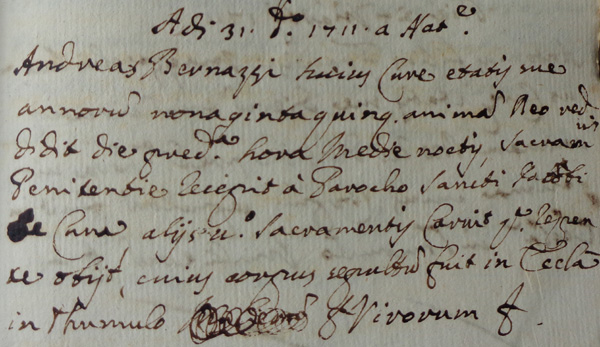 Adi 31. d.o 1711. a Nat.e
Andreas Bernazzi huius Cure etatis sue
annorũ nonaginta quinq. animã Deo red
didit die pred.a hora Medie noctis, Sacram
Penitentie Recepit à Parocho Sancti Jacobi
Cura, alijs u.o Sacramentis Caruit q.a Repen
te obijt, cuius corpus sepultũ fuit in Ecclã
in thumulo Virorum